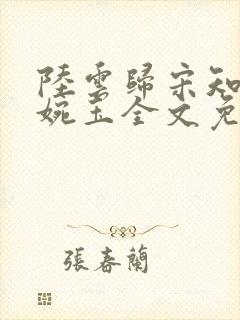 陸雲歸宋知
婉玉全文免
張春蘭